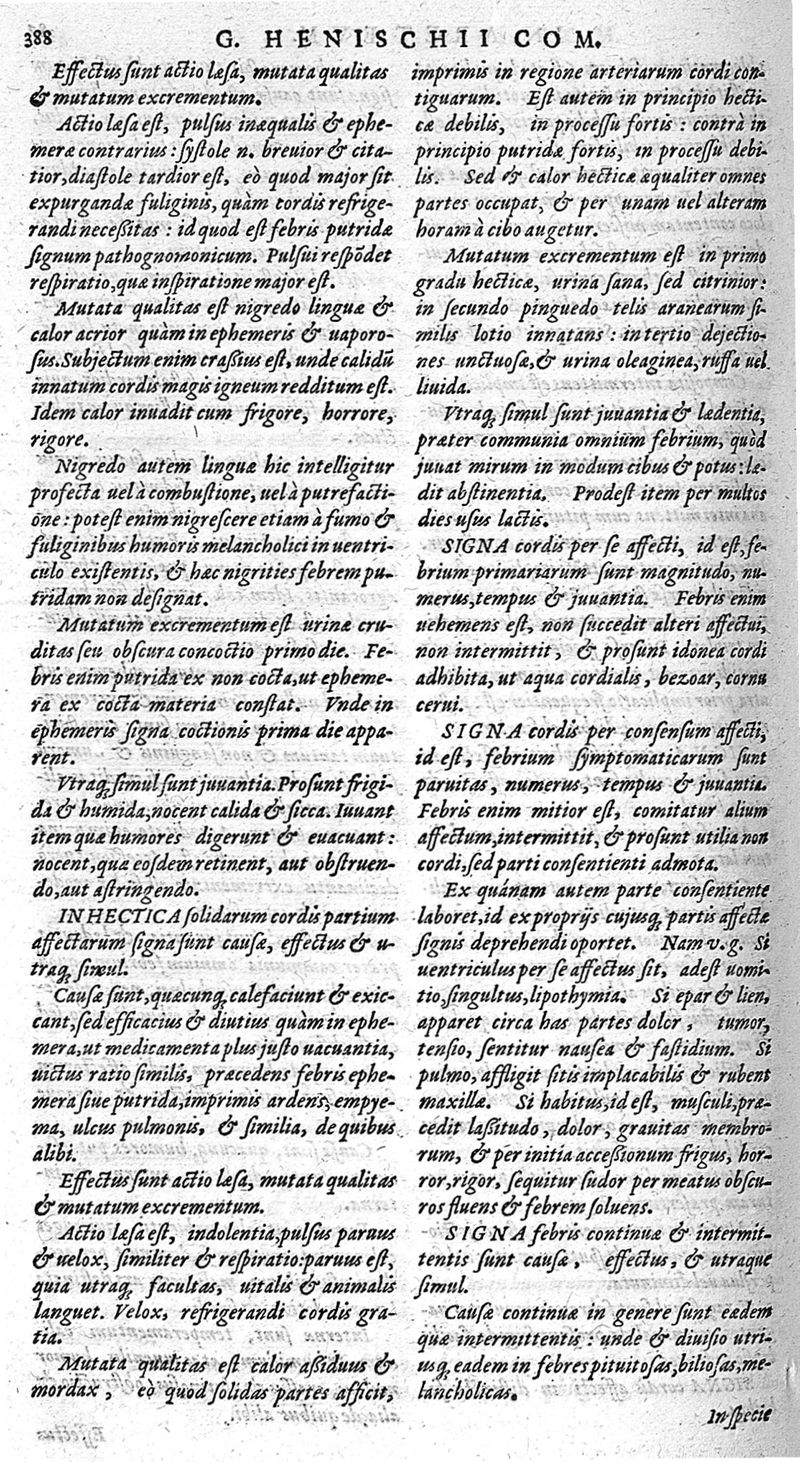 388
G. HENISCHII COM.
Effectus ſunt actio læſa, mutata qualitas
& mutatum excrementum.
Actio læſa eſt, pulſus inæqualis & ephe-
meræ contrarius: ſyſtole n. breuior & cita-
tior, diaſtole tardior eſt, eò quod major ſit
expurgandæ fuliginis, quàm cordis refrige-
randi neceßitas: id quod eſt febris putridæ
ſignum pathognomonicum. Pulſui reſpõdet
reſpiratio, quæ inſpiratione major eſt.
Mutata qualitas eſt nigredo linguæ &
calor acrior quàm in ephemeris & uaporo-
ſus. Subjectum enim craßius eſt, unde calidũ
innatum cordis magis igneum redditum eſt.
Idem calor inuadit cum frigore, horrore,
rigore.
Nigredo autem linguæ hic intelligitur
profecta uel à combuſtione, uel à putrefacti-
one: poteſt enim nigreſcere etiam à fumo &
fuliginibus humoris melancholici in uentri-
culo exiſtentis, & hæc nigrities febrem pu-
tridam non deſignat.
Mutatum excrementum eſt urinæ cru-
ditas ſeu obſcura concoctio primo die. Fe-
bris enim putrida ex non cocta, ut epheme-
ra ex cocta materia conſtat. Vnde in
ephemeris ſigna coctionis prima die appa-
rent.
Vtraq; ſimul ſunt juuantia. Proſunt frigi-
da & humida, nocent calida & ſicca. Iuuant
item quæ humores digerunt & euacuant:
nocent, quæ eoſdem retinent, aut obſtruen-
do, aut aſtringendo.
IN HECTICA ſolidarum cordis partium
affectarum ſigna ſunt cauſæ, effectus & u-
traq; ſimul.
Cauſæ ſunt, quæcunq; calefaciunt & exic-
cant, ſed efficacius & diutius quàm in ephe-
mera, ut medicamenta plus juſto uacuantia,
uictus ratio ſimilis, præcedens febris ephe-
mera ſiue putrida, imprimis ardens, empye-
ma, ulcus pulmonis, & ſimilia, de quibus
alibi.
Effectus ſunt actio læſa, mutata qualitas
& mutatum excrementum.
Actio læſa eſt, indolentia, pulſus paruus
& uelox, ſimiliter & reſpiratio: paruus eſt,
quia utraq; facultas, uitalis & animalis
languet. Velox, refrigerandi cordis gra-
tia.
Mutata qualitas eſt calor aßiduus &
mordax, eò quod ſolidas partes afficit,
imprimis in regione arteriarum cordi con-
tiguarum. Eſt autem in principio hecti-
cæ debilis, in proceſſu fortis: contrà in
principio putridæ fortis, in proceſſu debi-
lis. Sed & calor hecticæ æqualiter omnes
partes occupat, & per unam uel alteram
horam à cibo augetur.
Mutatum excrementum eſt in primo
gradu hecticæ, urina ſana, ſed citrinior:
in ſecundo pinguedo telis aranearum ſi-
milis lotio innatans: in tertio dejectio-
nes unctuoſæ, & urina oleaginea, ruffa uel
liuida.
Vtraq; ſimul ſunt juuantia & lædentia,
præter communia omnium febrium, quòd
juuat mirum in modum cibus & potus: læ-
dit abſtinentia. Prodeſt item per multos
dies uſus lactis.
SIGNA cordis per ſe affecti, id eſt, fe-
brium primariarum ſunt magnitudo, nu-
merus, tempus & juuantia. Febris enim
uehemens eſt, non ſuccedit alteri affectui,
non intermittit, & proſunt idonea cordi
adhibita, ut aqua cordialis, bezoar, cornu
cerui.
SIGNA cordis per conſenſum affecti,
id eſt, febrium ſymptomaticarum ſunt
paruitas, numerus, tempus & juuantia.
Febris enim mitior eſt, comitatur alium
affectum, intermittit, & proſunt utilia non
cordi, ſed parti conſentienti admota.
Ex quánam autem parte conſentiente
laboret, id ex proprijs cujusq; partis affectæ
ſignis deprehendi oportet. Nam v. g. Si
uentriculus per ſe affectus ſit, adeſt uomi-
tio, ſingultus, lipothymia. Si epar & lien,
apparet circa has partes dolor, tumor,
tenſio, ſentitur nauſea & faſtidium. Si
pulmo, affligit ſitis implacabilis & rubent
maxillæ. Si habitus, id eſt, muſculi, præ-
cedit laßitudo, dolor, grauitas membro-
rum, & per initia acceßionum frigus, hor-
ror, rigor, ſequitur ſudor per meatus obſcu-
ros fluens & febrem ſoluens.
SIGNA febris continuæ & intermit-
tentis ſunt cauſæ, effectus, & utraque
ſimul.
Cauſæ continuæ in genere ſunt eædem
quæ intermittentis: unde & diuiſio utri-
usq; eadem in febres pituitoſas, bilioſas, me-
lancholicas.
In ſpecie